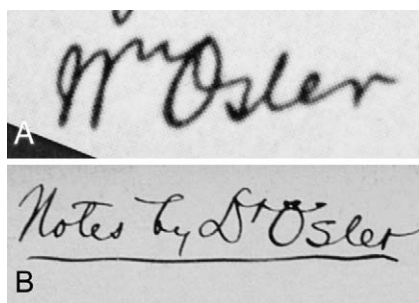 Wm Osler
A
Notes by Dr Osler
B